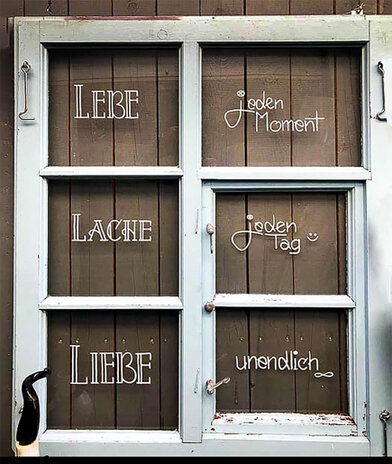 LEBE
jeden
Moment
LACHE
jeden
Tag
LIEBE
unendlich